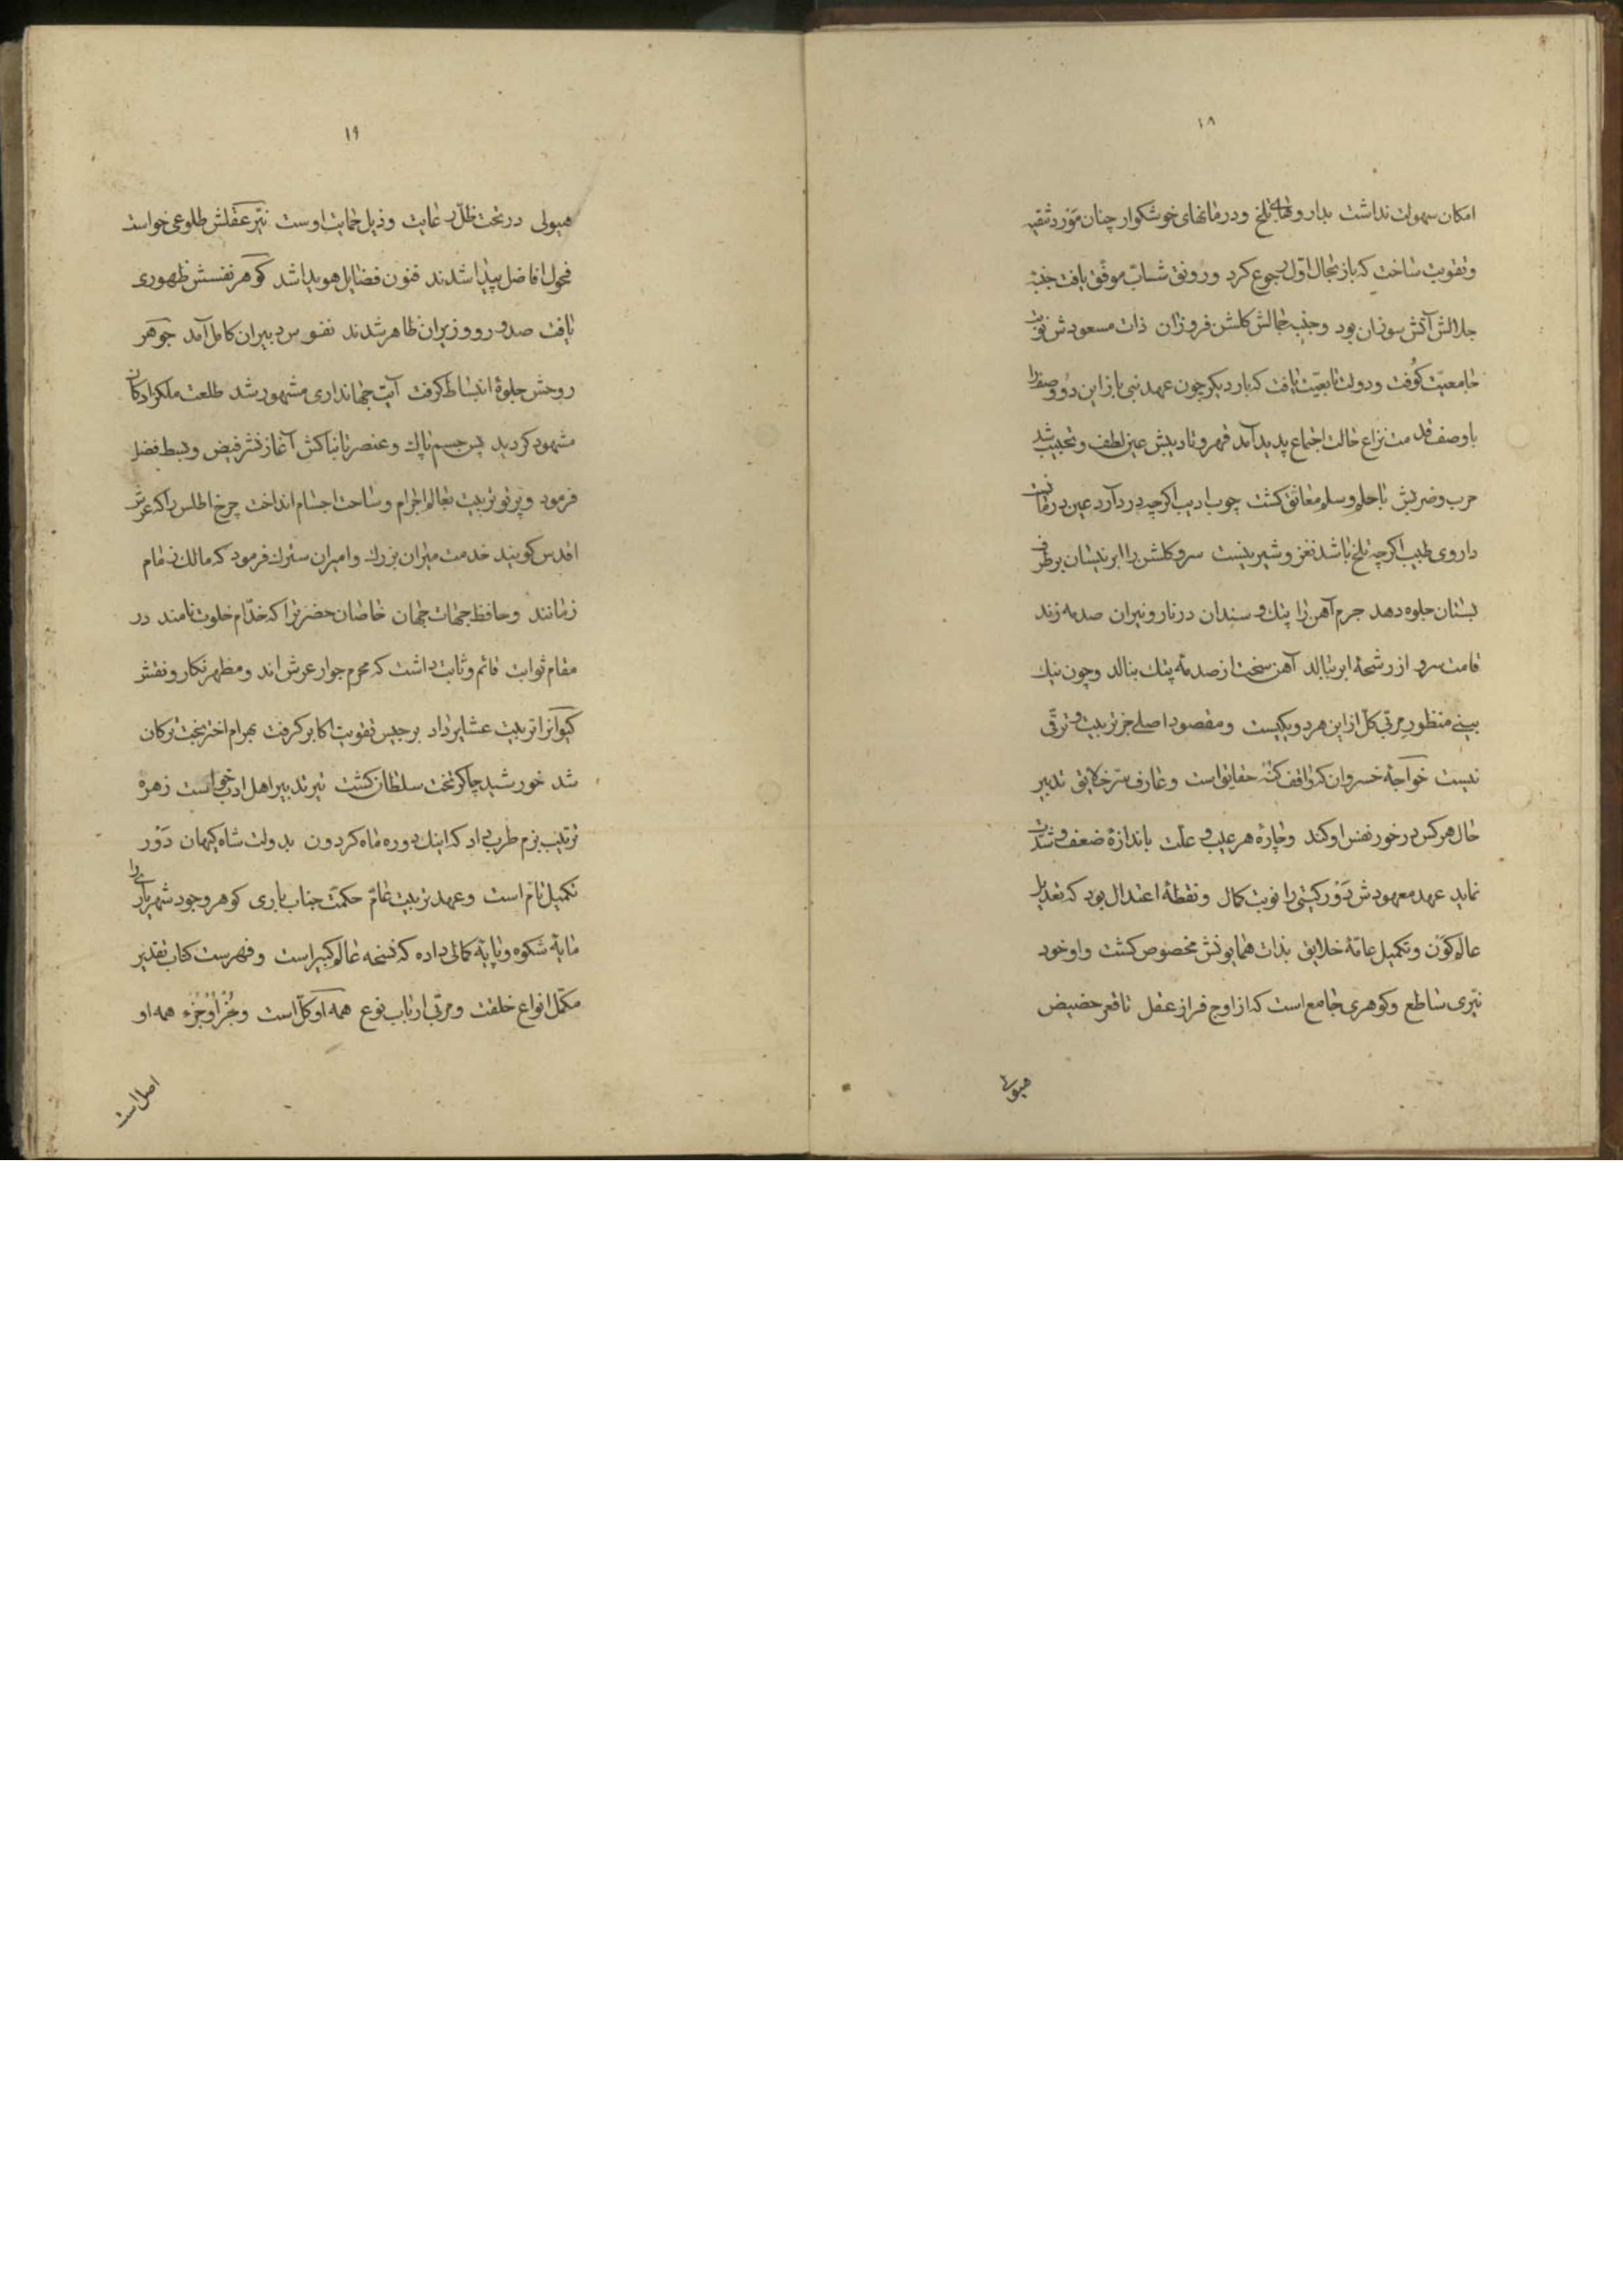 ۱۸
امکان سهولت نداشت بداروهای تلخ ودرمانهای خوشکوار چنان مورد تنقیه
وتقویت ساخت که باز بحال اول رجوع کرد ورونق شباب موفق یافت جنبه
جلالش آتش سوزان بود وجنب جمالش کلشن فروزان ذات مسعودش نوبت
جامعیت کوفت ودولت تابعیت یافت که بار دیکر چون عهد نبی باز این دو وصف را
باوصف قدمت نزاع حالت اجتماع پدید آمد قهر وتادیبش عین لطف وتحبیب شد
حرب وضربش باحلم وسلم معانق کشت چوب ادیب اکرچه درد آرد عین درمانست
داروی طبیب اکرچه تلخ باشد نغز وشیرینست سرو کلشن را ابر نیسان برطرف
بستان جلوه دهد جرم آهن را پتک وسندان در نار ونیران صدمه زند
قامت سرو از رشحهٔ ابر ببالد آهن سخت از صدمهٔ پتک بنالد وچون نیک
بینی منظور مربی کل از این هر دو یکیست ومقصود اصلی جز تربیت وترقی
نیست خواجهٔ خسروان که واقف کنه حقایق است وعارف سر خلایق تدبیر
حال هرکس در خور نفس او کند وچاره هر عیب وعلت باندازهٔ ضعف وشدت
نماید عهد معهودش دَوْر کیتی را نوبت کمال ونقطهٔ اعتدال بود که تعدیل
عالم کَوْن وتکمیل عامهٔ خلایق بذات همایونش مخصوص کشت واو خود
نیری ساطع وکوهری جامع است که از اوج فراز عقل تا قعر حضیض
هیولی
۱۹
هیولی در تحت ظل رعایت وذیل حمایت اوست نیر عقلش طلوعی خواست
فحول افاضل پیدا شدند فنون فضایل هویدا شد کوهر نفسش ظهوری
یافت صدور ووزیران ظاهر شدند نفوس دبیران کامل آمد جوهر
روحش جلوهٔ انبساط کرفت آیت جهانداری مشهور شد طلعت ملکزادکان
مشهود کردید پس جسم پاک وعنصر تابناکش آغاز نشر فیض وبسط فضل
فرمود وپرتو تربیت بعالم اجرام وساحت اجسام انداخت چرخ اطلس را که عرش
اقدس کویند خدمت میران بزرک وامیران سترک فرمود که مالک زمام
زمانند وحافظ جهات جهان خاصان حضرت را که خدام خلوت نامند در
مقام ثوابت قائم وثابت داشت که محرم جوار عرش اند ومظهر نکار ونقش
کیوانرا تربیت عشایر داد برجیس تقویت اکابر کرفت بهرام اختر بخت ترکان
شد خورشید چاکر تخت سلطان کشت تیر تدبیر اهل ادب خواست زهره
ترتیب بزم طرب داد که اینک دوره ماه کردون بدولت شاه کیهان دَوْر
تکمیل تام است وعهد تربیت عام حکمت جناب باری کوهر وجود شهریاری را
مایه شکوه وپایهٔ کمالی داده که نسخه عالم کبیر است وفهرست کتاب تقدیر
مکمل انواع خلقت ومربی ارباب نوع همه او کل است وجُزْ او جُزء همه او
اصل است